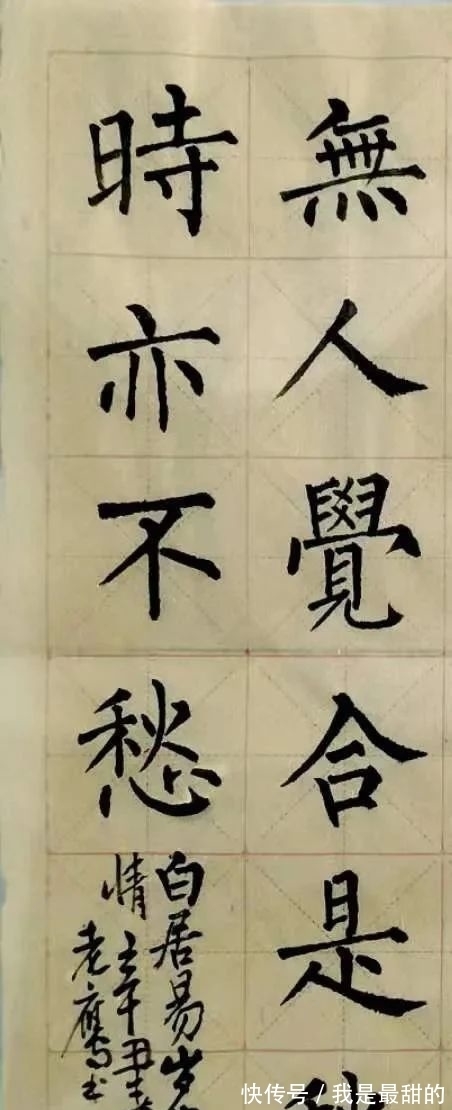 無人覺合是
時亦不愁
白居易岁
情
老鹰书
快传号 / 我是最甜的